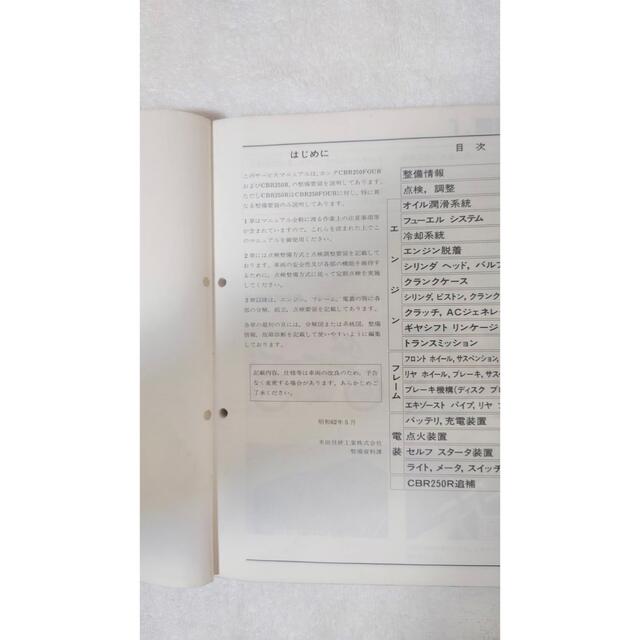 はじめに
このサービスマニュアルは、ホンダCBR250FOUR
およびCBR250R、の整備要領を説明してあります。
ただしCBR250RはCBR250FOURに対し、特に異
なる整備要領のみ説明してあります。
1章はマニュアル全般に渡る作業上の注意事項等
が含まれていますので、これらを読まれた上でこ
のマニュアルを御使用ください。
2章には点検整備方式と点検調整要領を記載して
おります。車両の安全性及び各部の機能を維持す
るために、点検整備方式に従って定期点検を実施
してください。
3章以降は、エンジン、フレーム、電装の別に各
部の分解、組立、点検要領を記載してあります。
各章の最初の頁には、分解図または系統図、整備
情報、故障診断を記載して使いやすいように編集
しております。
記載内容、仕様等は車両の改良のため、予告
なく変更する場合があります。あらかじめご
了承ください。
昭和62年5月
本田技研工業株式会社
整備資料課
目 次
整備情報
点検, 調整
エンジン
オイル潤滑系統
フューエル システム
冷却系統
エンジン脱着
シリンダ ヘッド, バルブ
クランクケース
シリンダ, ピストン, クランク
クラッチ, ACジェネレ
ギヤシフト リンケージ
トランスミッション
フレーム
フロント ホイール, サスペンション,
リヤ ホイール, ブレーキ, サス
ブレーキ機構(ディスク ブ
エキゾースト パイプ, リヤ
電装
バッテリ, 充電装置
点火装置
セルフ スタータ装置
ライト, メータ, スイッチ
CBR250R追補